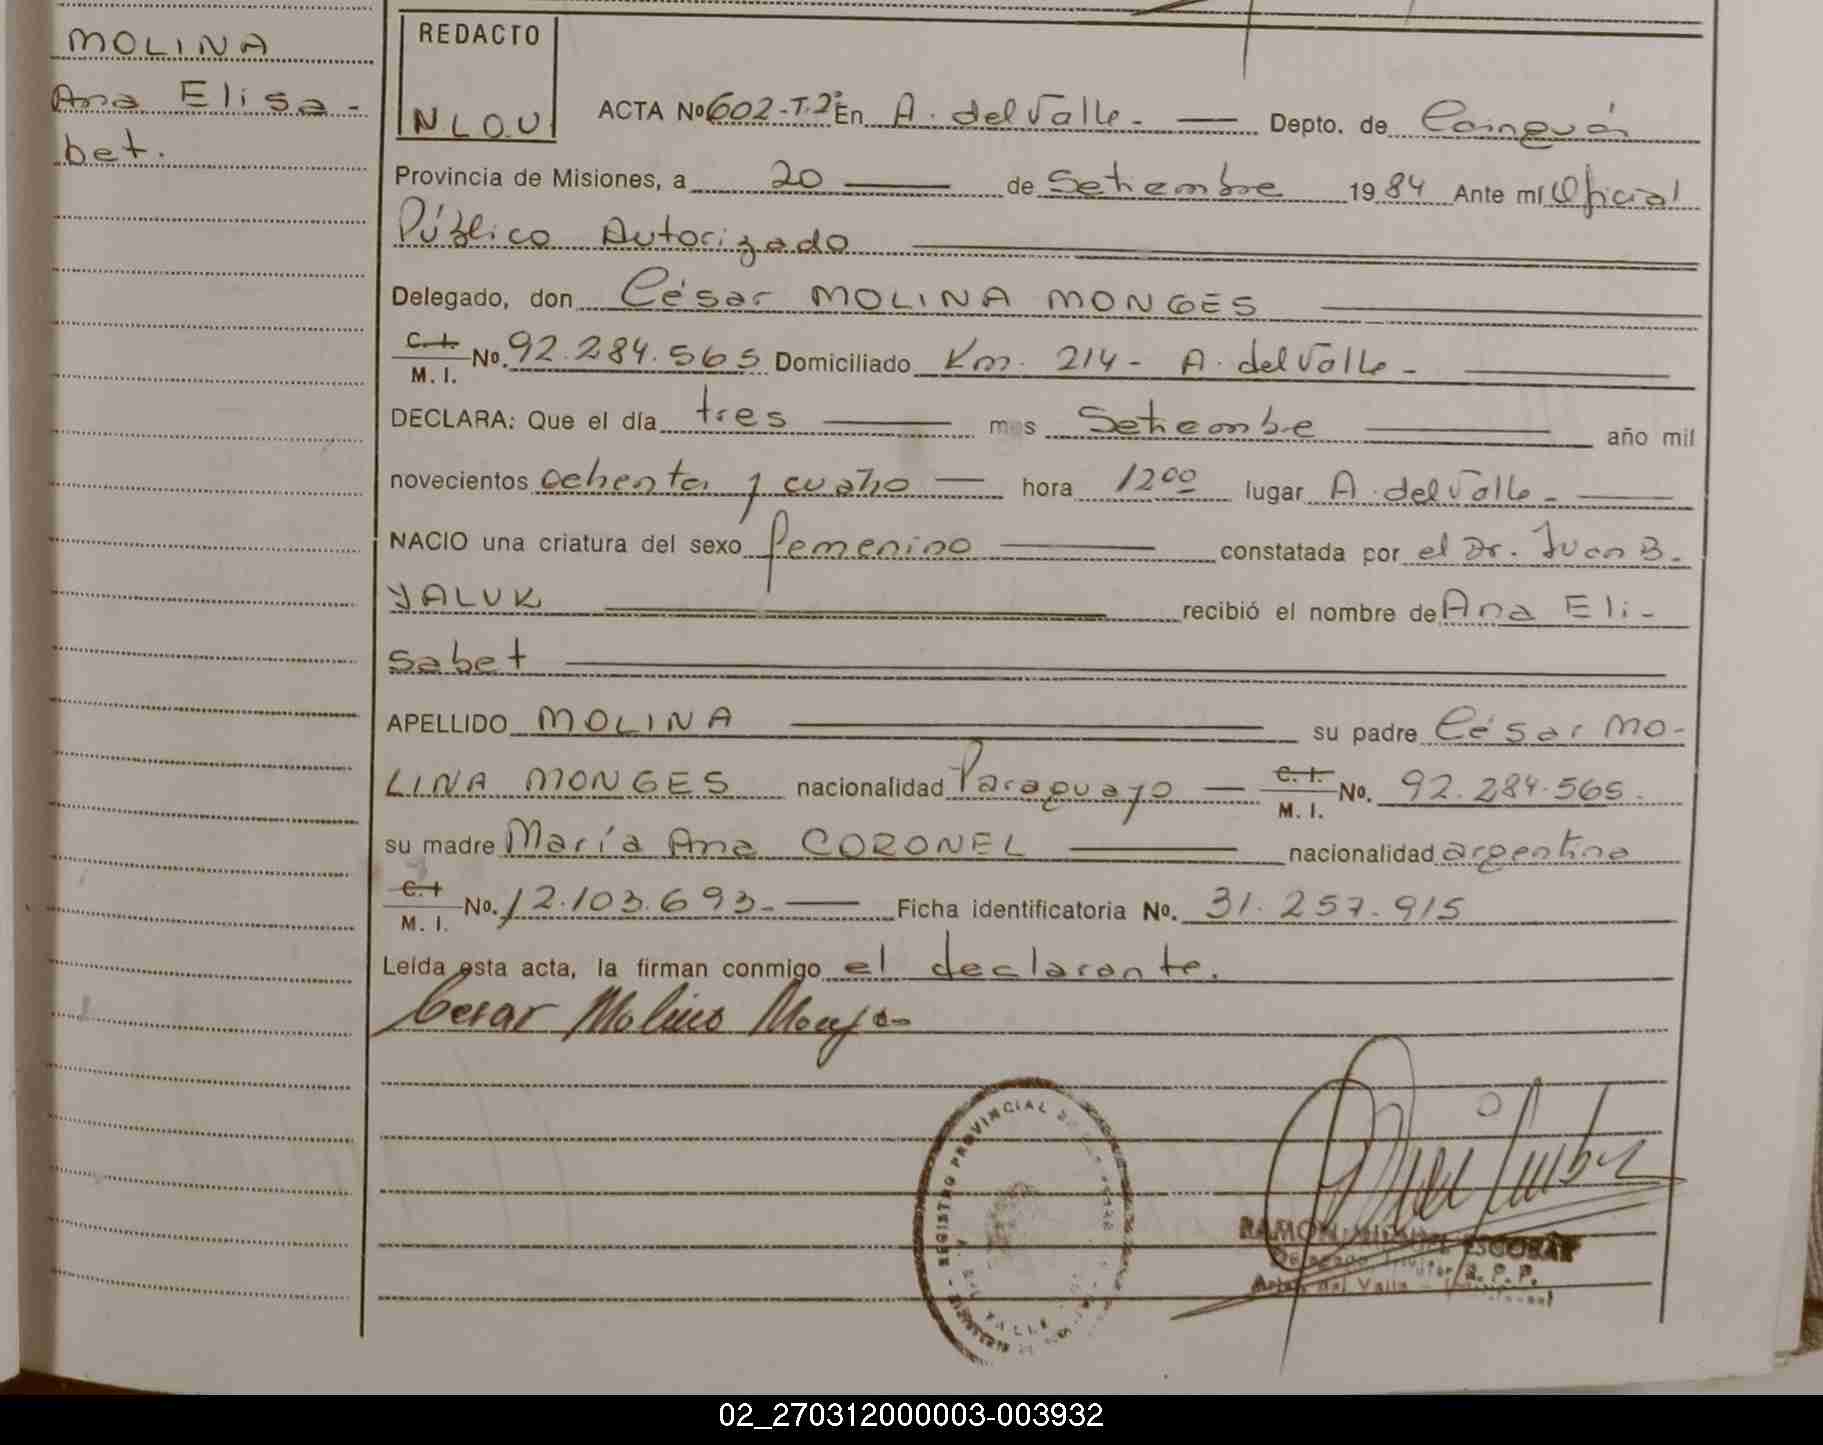 MOLINA
Ana Elisa-
bet.
REDACTO
N L O U
ACTA Nº 602-T.2º En A. del Valle - Depto. de Cainguás
Provincia de Misiones, a 20 de Setiembre 19 84 Ante mí Oficial
Público Autorizado
Delegado, don César MOLINA MONGES
C. I.
M. I. Nº. 92.284.565 Domiciliado Km. 214 - A. del Valle -
DECLARA: Que el día tres mes Setiembre año mil
novecientos ochenta y cuatro hora 12⁰⁰ lugar A. del Valle -
NACIO una criatura del sexo femenino constatada por el Dr. Juan B.
YALUK recibió el nombre de Ana Eli-
sabet
APELLIDO MOLINA su padre César MO-
LINA MONGES nacionalidad Paraguayo C. I.
M. I. Nº. 92.284.565.
su madre María Ana CORONEL nacionalidad argentina
C. I
M. I. Nº. 12.103.693.- Ficha identificatoria Nº. 31.257.915
Leída esta acta, la firman conmigo el declarante.
Cesar Molina Monges
REGISTRO PROVINCIAL DE LAS
DEL VALLE
RAMON ESCOBAR
R. P. P.
del Valle
02_270312000003-003932